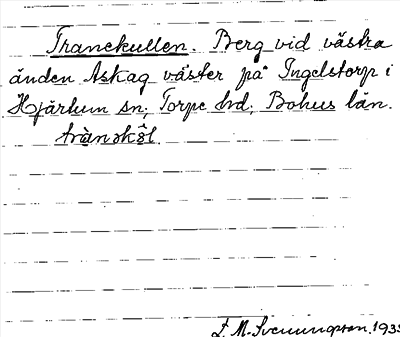 Tranekullen. Berg vid västra
änden Askag väster på Ingelstorp i
Hjärtum sn; Torpe hd; Bohus län.
F. M. Svenungsson. 1935